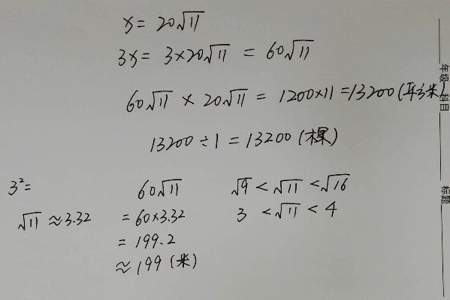 x = 20√11
3x = 3×20√11 = 60√11
60√11 × 20√11 = 1200×11 = 13200 (平方米)
13200÷1 = 13200 (棵)
3²=
√11 ≈ 3.32
60√11
= 60×3.32
= 199.2
≈ 199 (米)
√9 < √11 < √16
3 < √11 < 4
年级
科目
标题